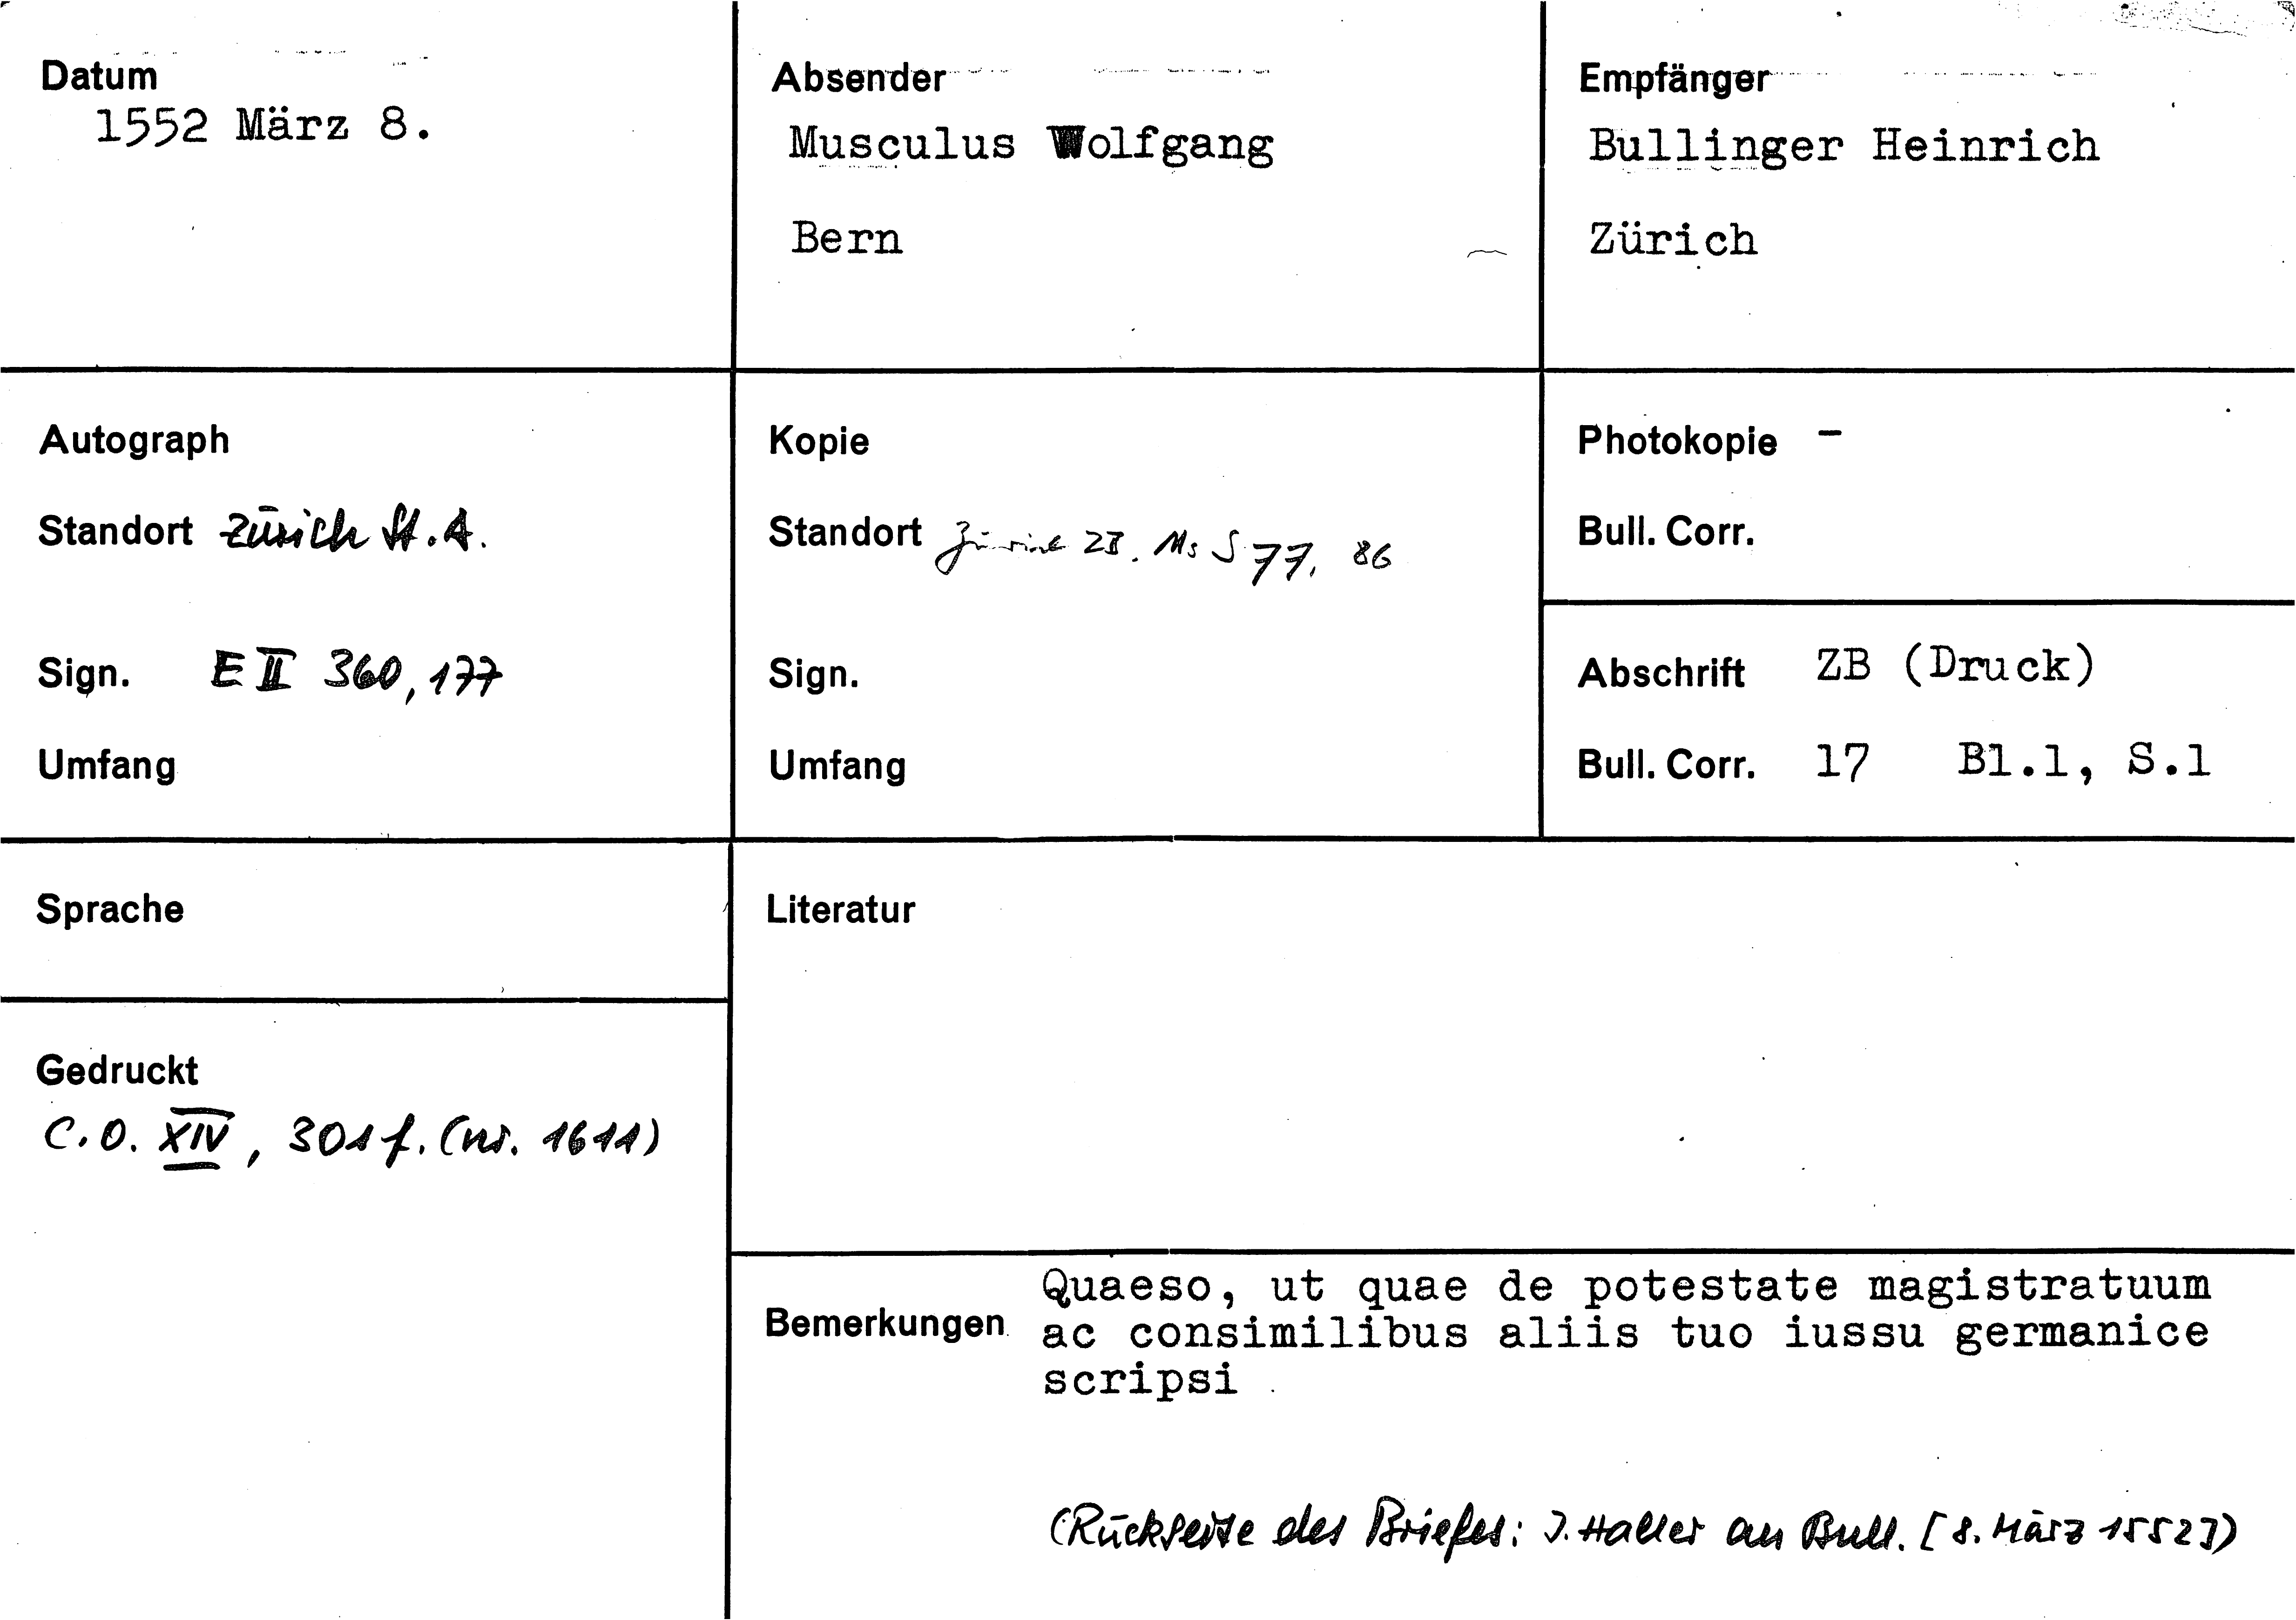 Datum
1552 März 8.
Absender
Musculus Wolfgang
Bern
Empfänger
Bullinger Heinrich
Zürich
Autograph
Standort Zürich St.A.
Sign. E II 360, 177
Umfang
Kopie
Standort Zürich ZB. Ms S 77, 86
Sign.
Umfang
Photokopie -
Bull. Corr.
Abschrift ZB (Druck)
Bull. Corr. 17 Bl.1, S.1
Sprache
Gedruckt
C.O. XIV, 301 f. (nr. 1611)
Literatur
Bemerkungen
Quaeso, ut quae de potestate magistratuum
ac consimilibus aliis tuo iussu germanice
scripsi
(Rückseite des Briefes: J. Haller an Bull. [8. März 1552])